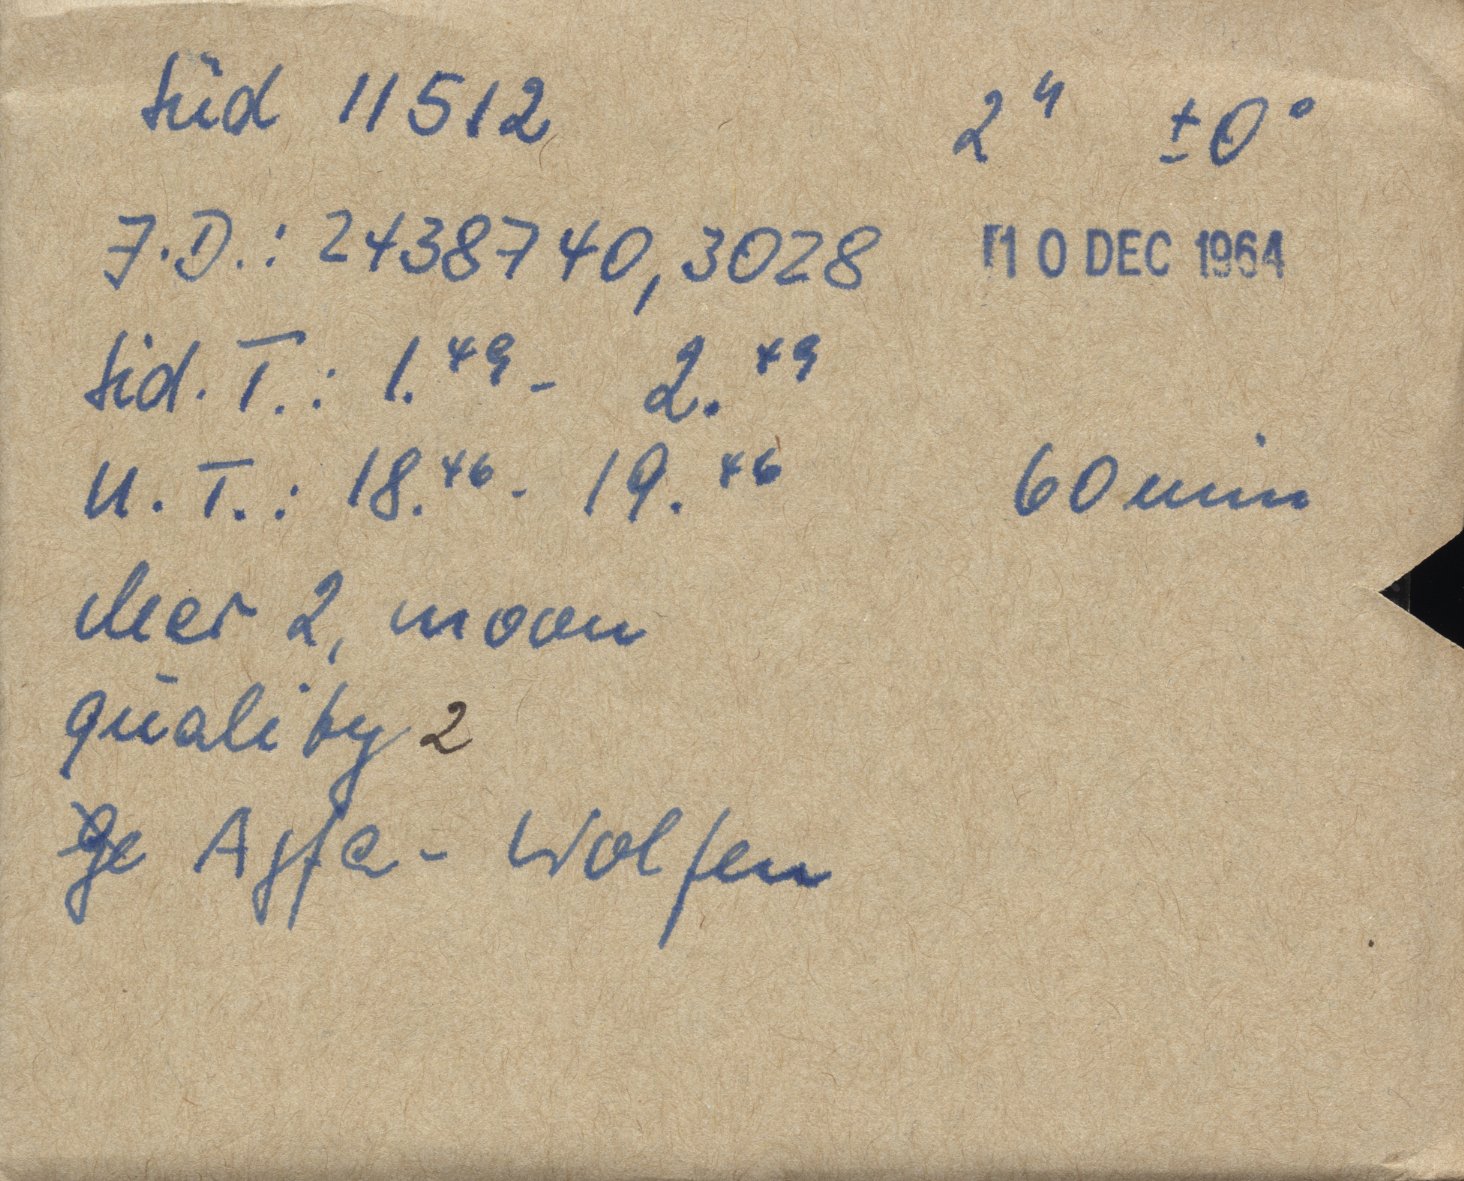 Süd 11512 2ʰ ±0°
J.D.: 2438740,3028 10 DEC 1964
Sid. T.: 1.⁴⁹ - 2.⁴⁹
U. T.: 18.⁴⁶ - 19.⁴⁶ 60 min
clear 2, moon
quality 2
Agfa - Wolfen